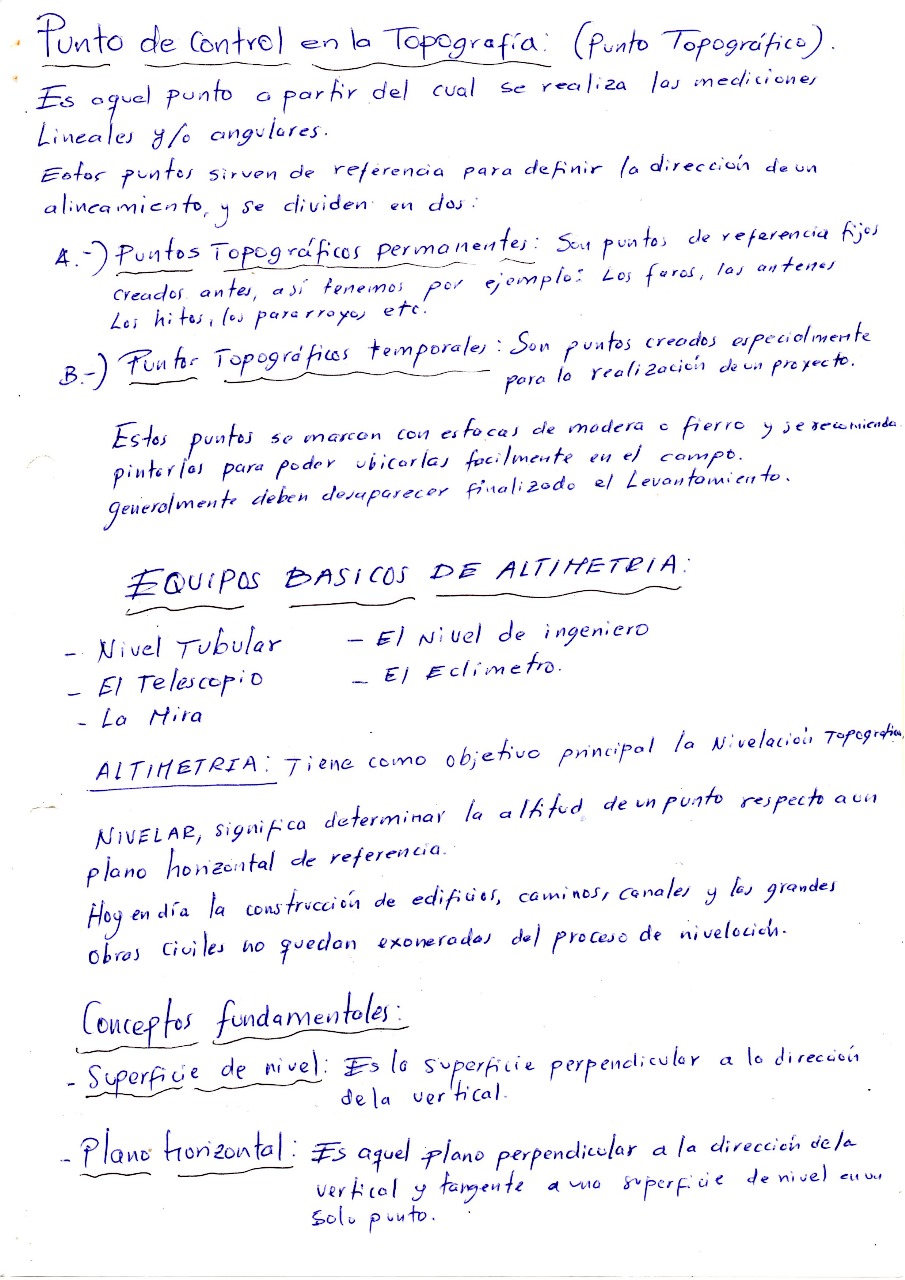 Punto de Control en la Topografía: (Punto Topográfico).
Es aquel punto a partir del cual se realiza las mediciones
Lineales y/o angulares.
Estos puntos sirven de referencia para definir la dirección de un
alineamiento, y se dividen en dos:
A.-) Puntos Topográficos permanentes: Son puntos de referencia fijos
creados antes, así tenemos por ejemplo: Los faros, las antenas
Los hitos, los pararrayos etc.
B.-) Puntos Topográficos temporales: Son puntos creados especialmente
para la realización de un proyecto.
Estos puntos se marcan con estacas de madera o fierro y se recomienda
pintarlas para poder ubicarlas facilmente en el campo.
generalmente deben desaparecer finalizado el Levantamiento.
EQUIPOS BASICOS DE ALTIMETRIA:
- Nivel Tubular - El Nivel de ingeniero
- El Telescopio - El Eclímetro.
- La Mira
ALTIMETRIA: Tiene como objetivo principal la Nivelación Topografica
NIVELAR, significa determinar la altitud de un punto respecto a un
plano horizontal de referencia.
Hoy en día la construcción de edificios, caminos, canales y las grandes
Obras Civiles no quedan exoneradas del proceso de nivelación.
Conceptos fundamentales:
- Superficie de nivel: Es la superficie perpendicular a la dirección
de la vertical.
- Plano horizontal: Es aquel plano perpendicular a la dirección de la
vertical y tangente a una superficie de nivel en un
Solo punto.